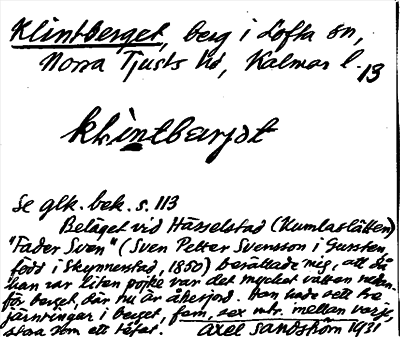 Klintberget, berg i Lofta sn,
Norra Tjusts hd, Kalmar l. 13
klintbarjət
Se glk. bek. s. 113
Beläget vid Hässelstad (Kumlaslätten)
"Fader Sven" (Sven Petter Svensson i Gursten,
född i Skynnestad, 1850) berättade mig, att då
han var liten pojke var det mycket vatten neden-
för berget, där nu är åkerjord. Han hade sett tre
järnringar i berget, fem, sex mtr. mellan varje,
stora som ett 
Axel Sandström 1931